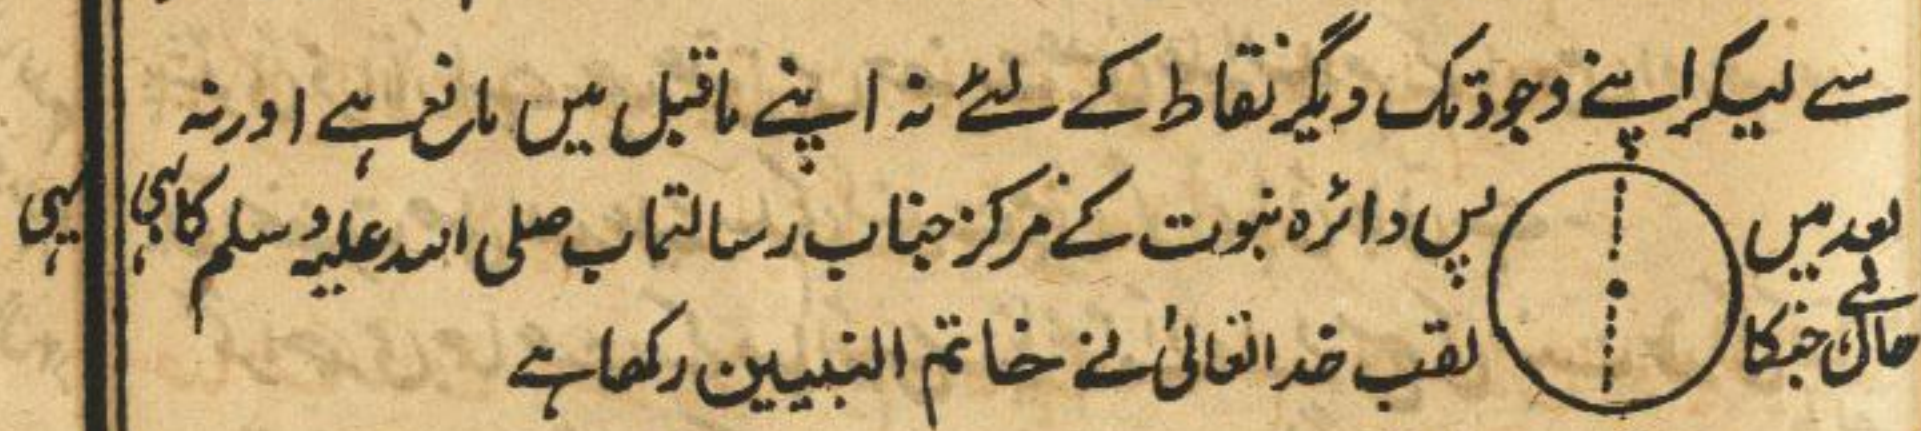 سے لیکر اپنے وجود تک دیگر نقاط کے لئے نہ اپنے ماقبل میں مانع ہے اور نہ
بعد میں پس دائرہ نبوت کے مرکز جناب رسالتماب صلی اللہ علیہ وسلم کا ہی یہی
حال ہے جنکا لقب خدا تعالیٰ نے خاتم النبیین رکھا ہے